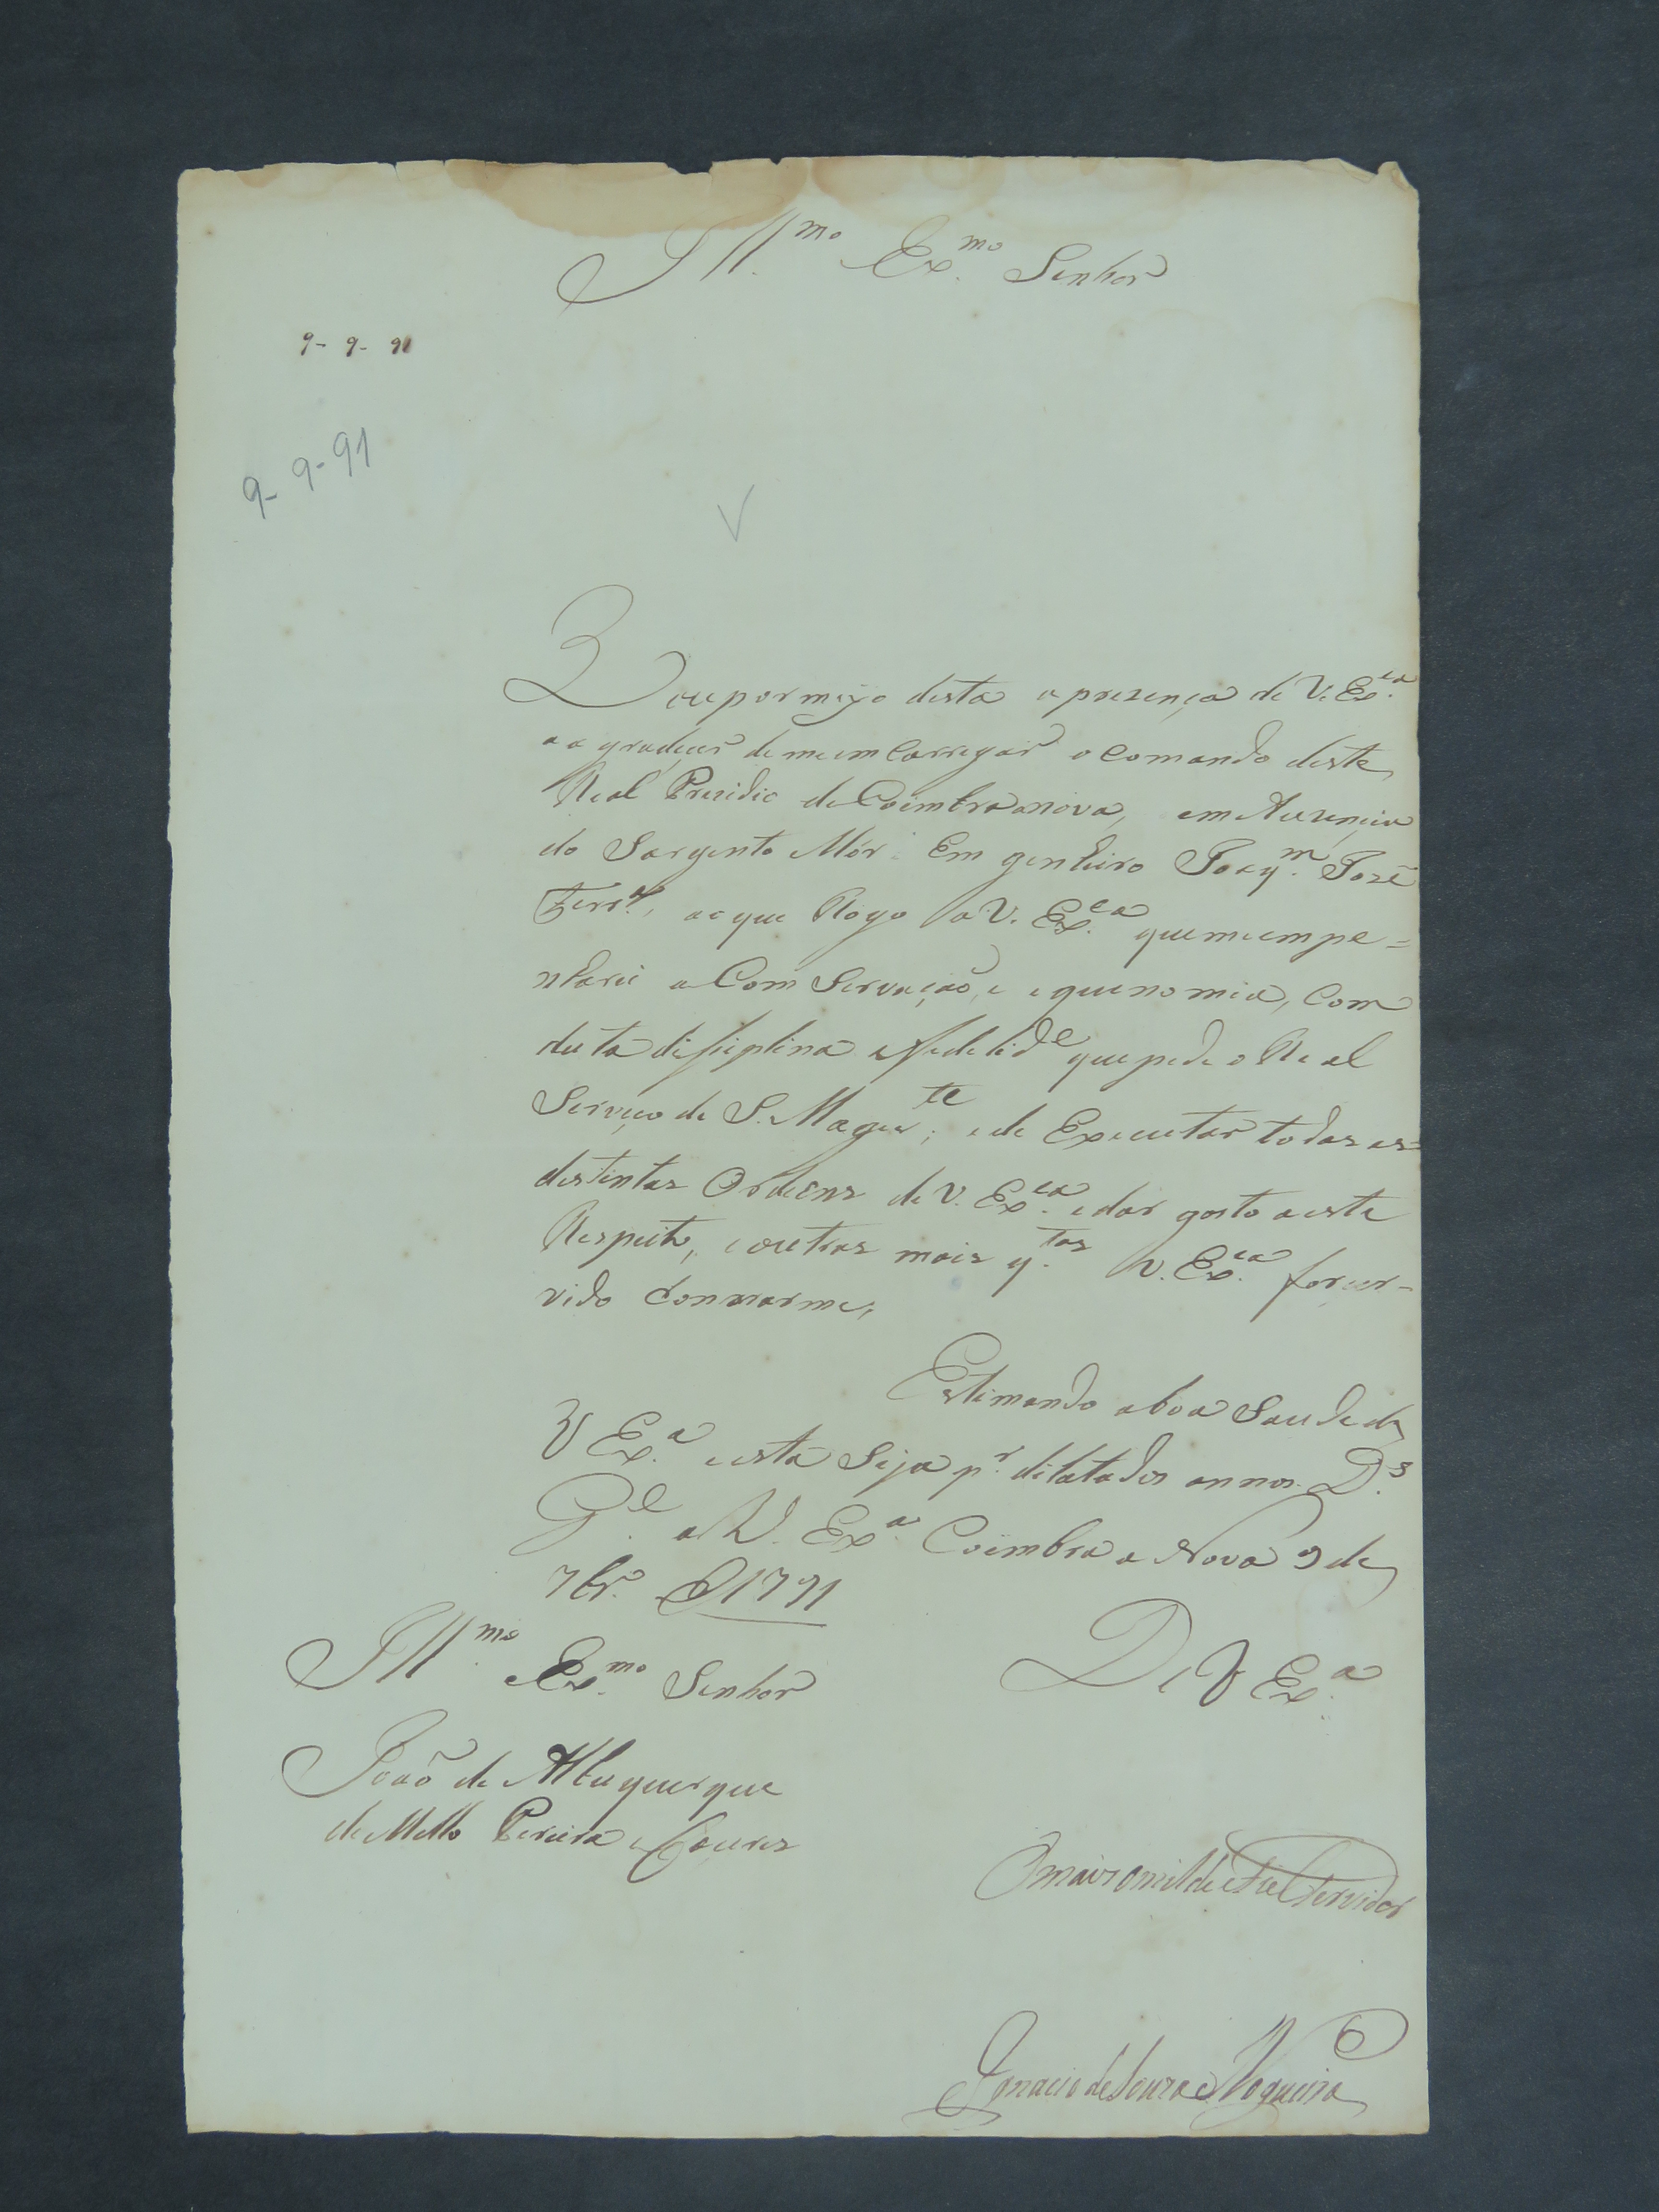 Ill.mo Ex.mo Senhor
9- 9- 91
9- 9- 91
Vou por meyo desta a prezença de V. Ex.cia
a agradecer de me em Carregar o Comando deste
Real Prezidio de Coimbra a nova, em Auzencia
do Sargento Mór Em genheiro Joaq.m José
Ferr.a, ao que Rogo a V. Ex.cia que me empe=
nharei a Com Servação, e equenomia, Com
duta disiplina e fedelid.e que pede o Real
Serviço de S. Mages.te, e de Executar todas as
destintas Ordens de V. Ex.cia e dar gosto a este
Respeito, e outras mais q.tas V. Ex.cia for ser-
vido
Estimando a boa Saude de
V Ex.a e esta Seja p.r dilatados annos. D.s
G.e a V. Ex.a Coimbra a Nova 9 de
7br.o D 1791
Ill.mo e Ex.mo Senhor
De V Ex.a
João de Albuquerque
de Mello Pereira e Caceres
O mais omilde e Fiel Servidor
Ignacio de Souza Nogueira